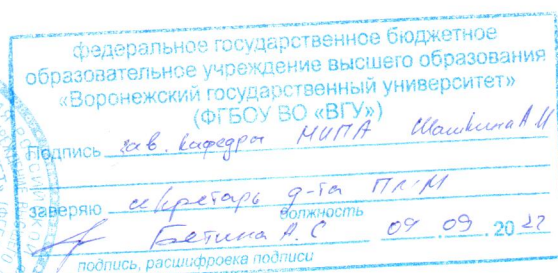 федеральное государственное бюджетное
образовательное учреждение высшего образования
«Воронежский государственный университет»
(ФГБОУ ВО «ВГУ»)
Подпись зав. кафедры МИПА Шашкина А.И
заверяю секретарь ф-та ПММ
должность
Бетина А.С 09 09. 20 22
подпись, расшифровка подписи